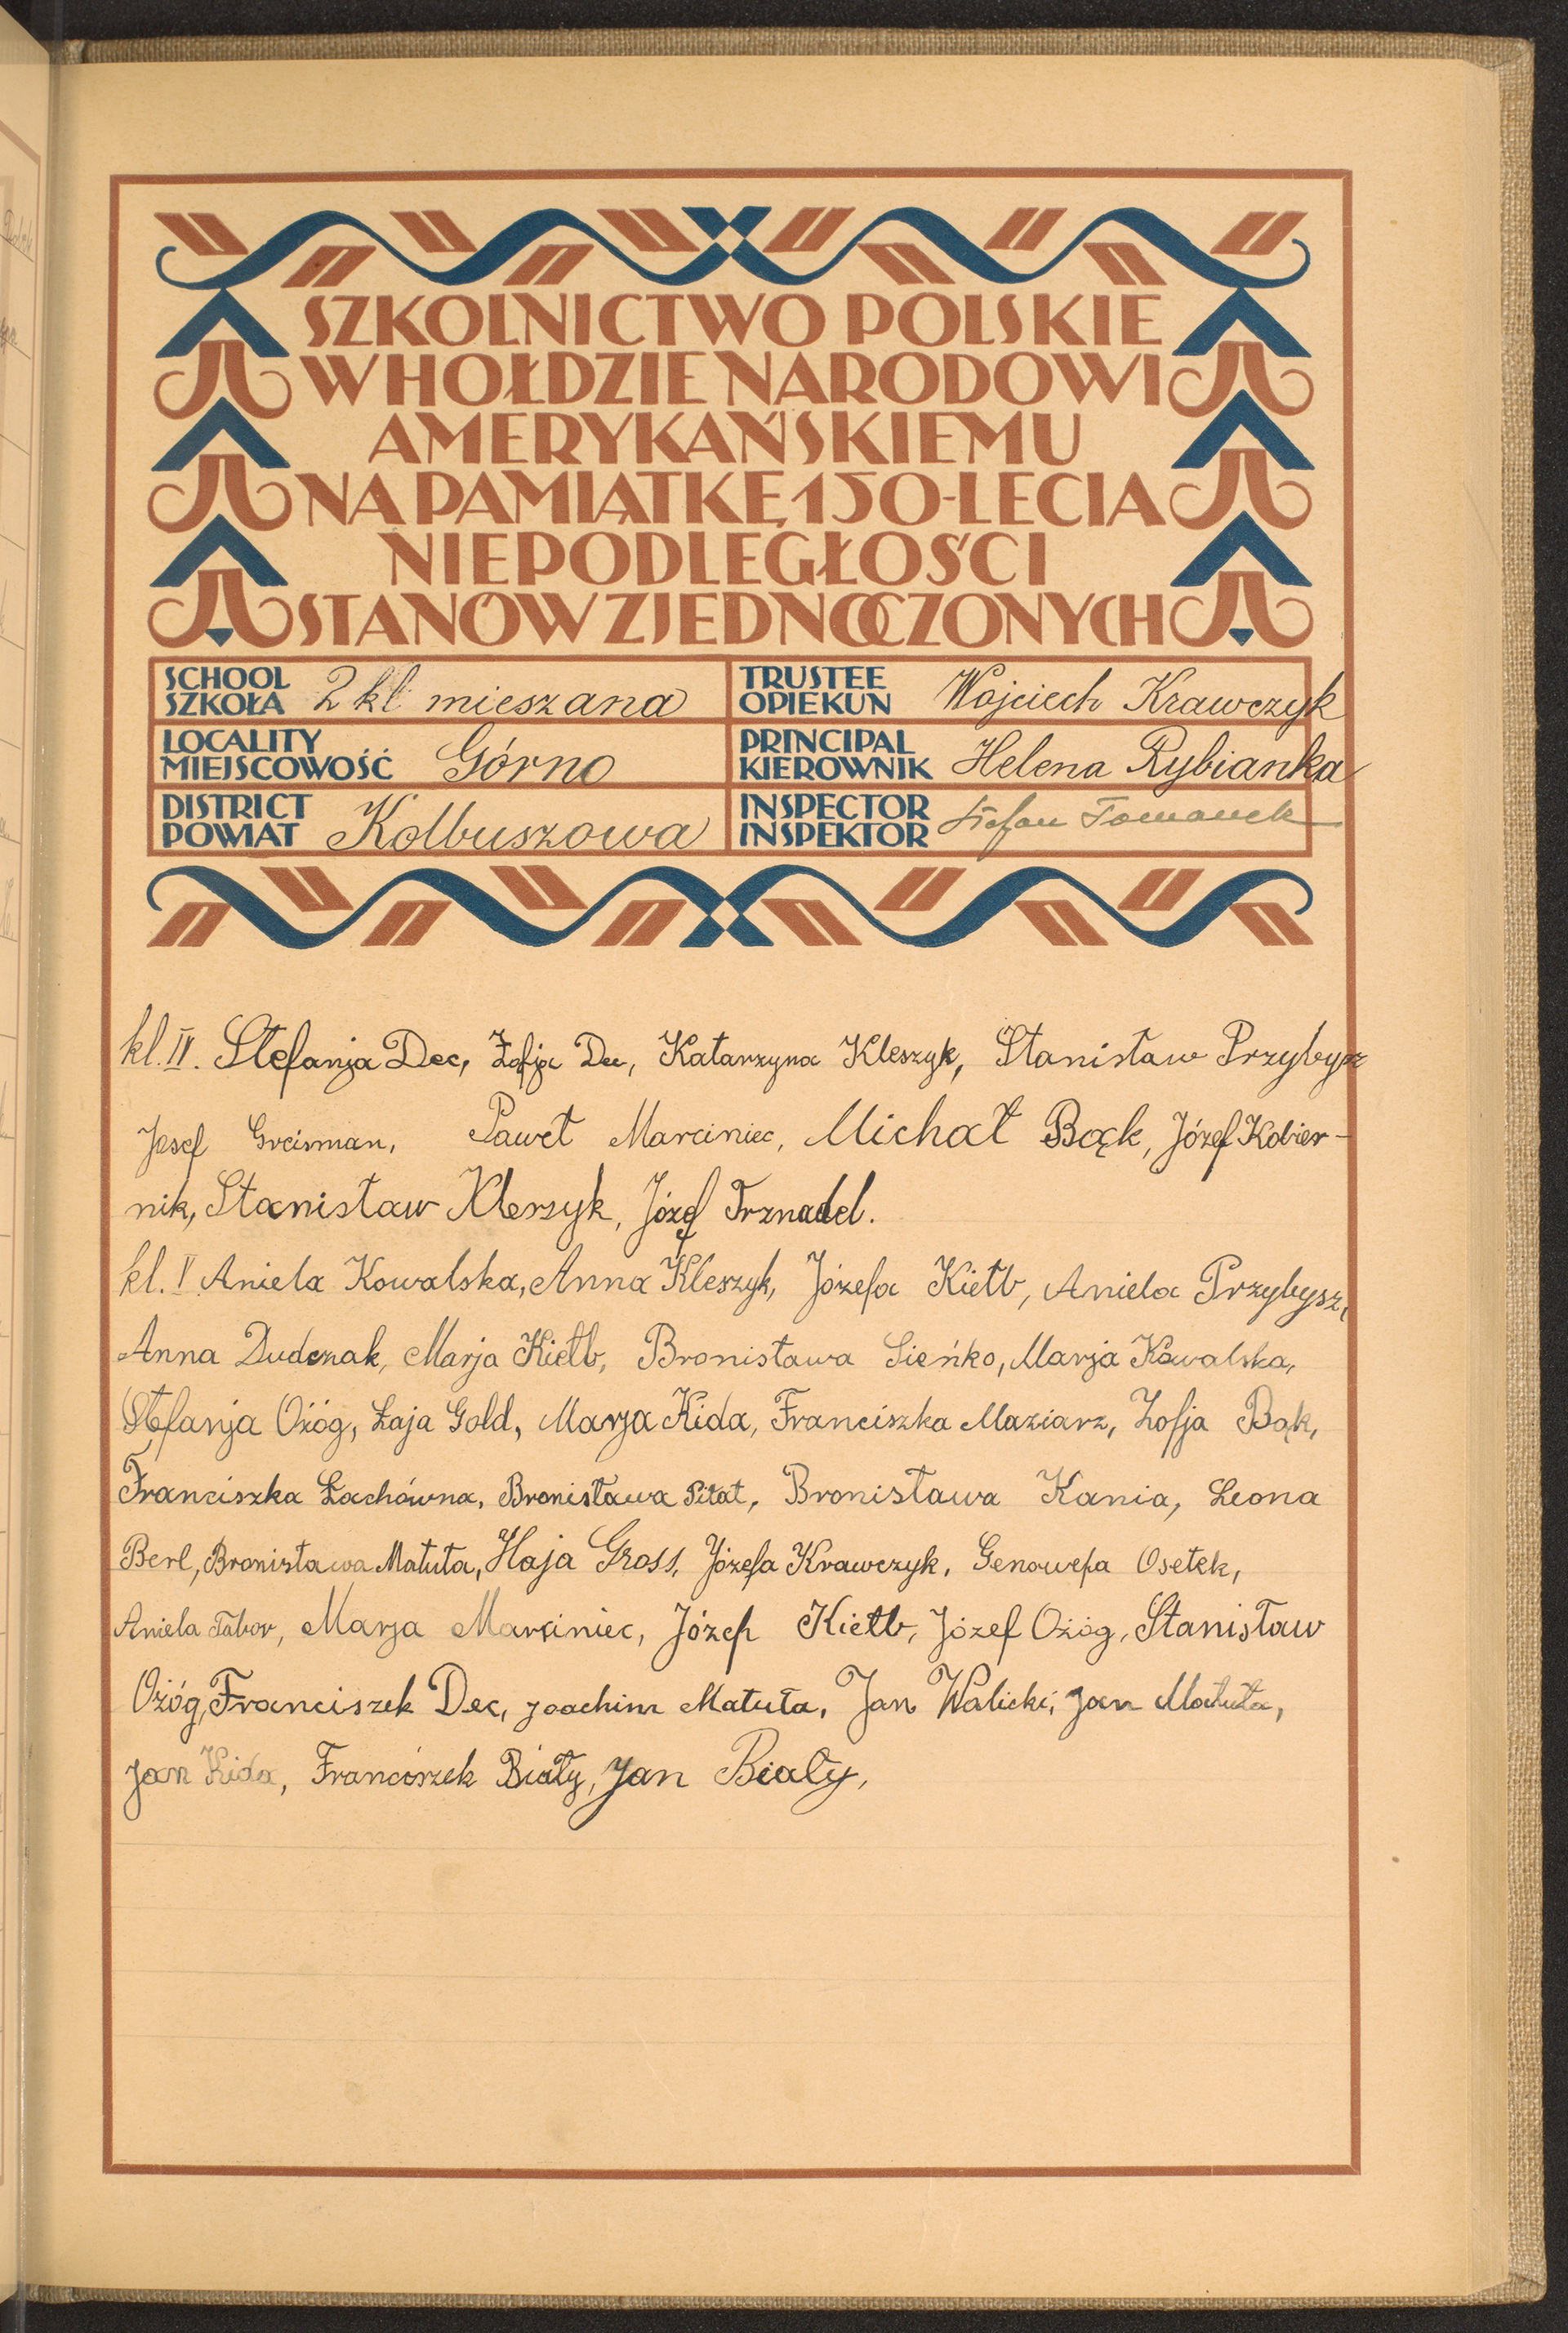 SZKOLNICTWO POLSKIE
W HOŁDZIE NARODOWI
AMERYKAŃSKIEMU
NA PAMIĄTKĘ 150-LECIA
NIEPODLEGŁOŚCI
STANÓW ZJEDNOCZONYCH
SCHOOL
SZKOŁA 2 kl mieszana
TRUSTEE
OPIEKUN Wojciech Krawczyk
LOCALITY
MIEJSCOWOŚĆ Górno
PRINCIPAL
KIEROWNIK Helena Rybianka
DISTRICT
POWIAT Kolbuszowa
INSPECTOR
INSPEKTOR Stefan Tomanek
kl. IV. Stefanja Dec, Zofja Dec, Katarzyna Kleszyk, Stanisław Przybysz
Josef Greisman, Paweł Marciniec, Michał Bąk, Józef Kobier-
nik, Stanisław Kleszyk, Józef Trznadel.
kl. V Aniela Kowalska, Anna Kleszyk, Józefa Kiełb, Aniela Przybysz,
Anna Dudczak, Marja Kiełb, Bronisława Sieńko, Marja Kowalska,
Stefanja Ożóg, Łaja Gold, Marja Kida, Franciszka Maziarz, Zofja Bąk,
Franciszka Łachówna, Bronisława Pitat, Bronisława Kania, Leona
Berl, Bronisława Matuła, Haja Gross, Józefa Krawczyk, Genowefa Osetek,
Aniela Tabor, Marja Marciniec, Józef Kiełb, Józef Ożóg, Stanisław
Ożóg, Franciszek Dec, Joachim Matuła, Jan Walicki, Jan Matuła,
Jan Kida, Franciszek Biały, Jan Biały,